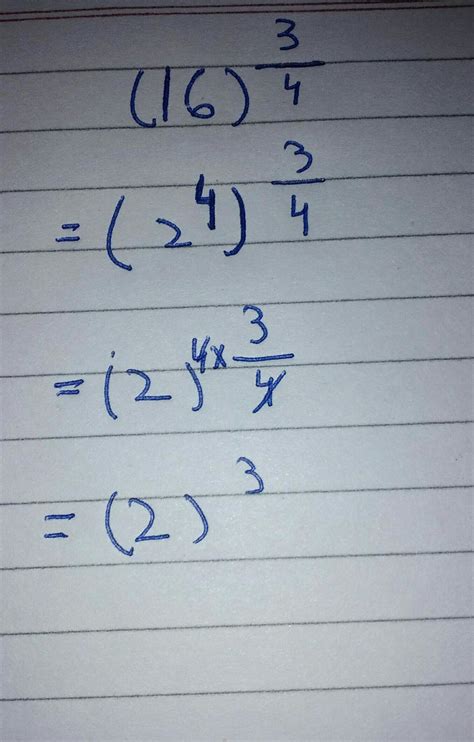 (16)^(3/4)
= (2^4)^(3/4)
= (2)^(4×3/4)
= (2)^3